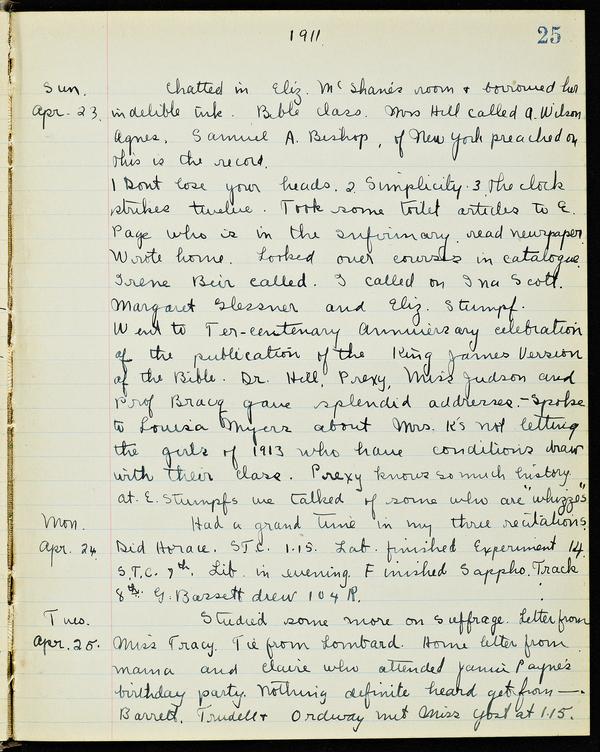 1911
25
Sun. Chatted in Eliz. McShane's room & borrowed her
Apr. 23. indelible ink. Bible Class. Mrs Hill called A. Wilson
Agnes. Samuel A. Bishop, of New York preached on
this is the record.
1 Dont lose your heads. 2 Simplicity. 3 The clock
strikes twelve. Took some toilet articles to E.
Page who is in the infirmary. read newspaper.
Wrote home. Looked over courses in catalogue.
Irene Beir called. I called on Ina Scott.
Margaret Glessner and Eliz. Stumpf.
Went to Ter-centenary Anniversary celebration
of the publication of the King James Version
of the Bible. Dr. Hill, Prexy, Miss Judson and
Prof Bracq gave splendid addresses. - Spoke
to Louisa Myers about Mrs. K's not letting
the girls of 1913 who have conditions draw
with their class. Prexy knows so much history.
at E. Stumpfs we talked of some who are "whizzes"
Mon. Had a grand time in my three recitations.
Apr. 24 Did Horace. S.T.C. 1.15. Lab. finished Experiment 14.
S.T.C. 7th. Lib. in evening. Finished Sappho. Track
8th. G. Bassett drew 104 R.
Tues. Studied some more on Suffrage. Letter from
Apr. 25. Miss Tracy. Tie from Lombard. Home letter from
mama and Claire who attended Jamie Payne's
birthday party. Nothing definite heard yet from —.
Barrett, Trudell & Ordway met Miss Yost at 1.15.